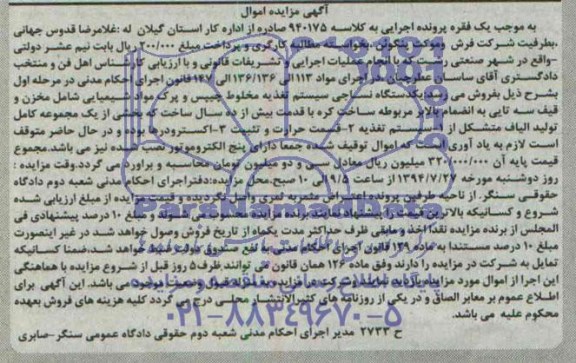 آگهی مزایده اموال
به موجب یک فقره پرونده اجرایی به کلاسه ۹۴۰۱۷۵ صادره از اداره کار استان گیلان له :غلامرضا قدوس جهانی
،بطرفیت شرکت فرش وموکت بخواسته مطالبه کارگری و پرداخت مبلغ ۲۰۰/۰۰۰ ریال بابت نیم عشر دولتی
-واقع در شهر صنعتی رشت که با انجام عملیات اجرایی و تشریفات قانونی و با ارزیابی کارشناس اهل فن و منتخب
دادگستری آقای ساسان در اجرای مواد ۱۱۳الی ۱۳۶/۱۲۶الی ۱۴۷قانون اجرای احکام مدنی در مرحله اول
بشرح ذیل بفروش می رسد یکدستگاه نساجی سیستم تغذیه مخلوط چیپس و پرک مواد شیمیایی شامل مخزن و
قیف سه تایی به انضمام بالابر مربوطه ساخت کره با قدمت بیش از ۲۰ سال ساخت که بخشی از یک مجموعه کامل
تولید الیاف متشکل از ۱-سیستم تغذیه ۲-قسمت حرارت و تثبیت ۳-اکسترودرها بوده و در حال حاضر متوقف
است لازم به یاد آوری است که اموال توقیف شده جمعا دارای پنج الکتروموتور نصب شده نیز می باشد.مجموع
قیمت پایه آن ۳۲۰/۰۰۰/۰۰۰ میلیون ریال معادل سی و دو میلیون تومان محاسبه و براورد می گردد.وقت مزایده :
روز دوشنبه مورخه ۱۳۹۴/۷/۲۷ از ساعت ۹/۵ الی ۱۰ صبح.محل مزایده:دفتراجرای احکام مدنی شعبه دوم دادگاه
حقوقی سنگر. از ناحیه طرفین پرونده اعتراض مثمربه ثمری واصل نگردیده و قیمت مزایده از مبلغ ارزیابی شده
شروع و کسانیکه بالاترین قیمت را پیشنهاد نمایند برنده مزایده محسوب می شوند و مبلغ ۱۰ درصد پیشنهادی فی
المجلس از برنده مزایده نقدا اخذ و مابقی ظرف حداکثر مدت یکماه از تاریخ فروش وصول خواهد شد در غیر اینصورت
مبلغ ۱۰ درصد مستندا به ماده ۱۲۹ قانون اجرای احکام مدنی به نفع صندوق دولت ضبط خواهد شد،ضمنا کسانیکه
تمایل به شرکت در مزایده را دارند وفق ماده ۱۲۶ همان قانون می توانند ظرف ۵ روز قبل از شروع مزایده با هماهنگی
این اجرا از اموال مورد مزایده بازدید نمایند وشرکت در مزایده می باشد. این آگهی برای
اطلاع عموم بر معابر الصاق و در یکی از روزنامه های کثیرالانتشار محلی درج می گردد کلیه هزینه های فروش بعهده
محکوم علیه می باشد.
ح ۲۷۳۳ مدیر اجرای احکام مدنی شعبه دوم حقوقی دادگاه عمومی سنگر-صابری
۰۲۱-۸۸۳۴۹۶۷۰-۵